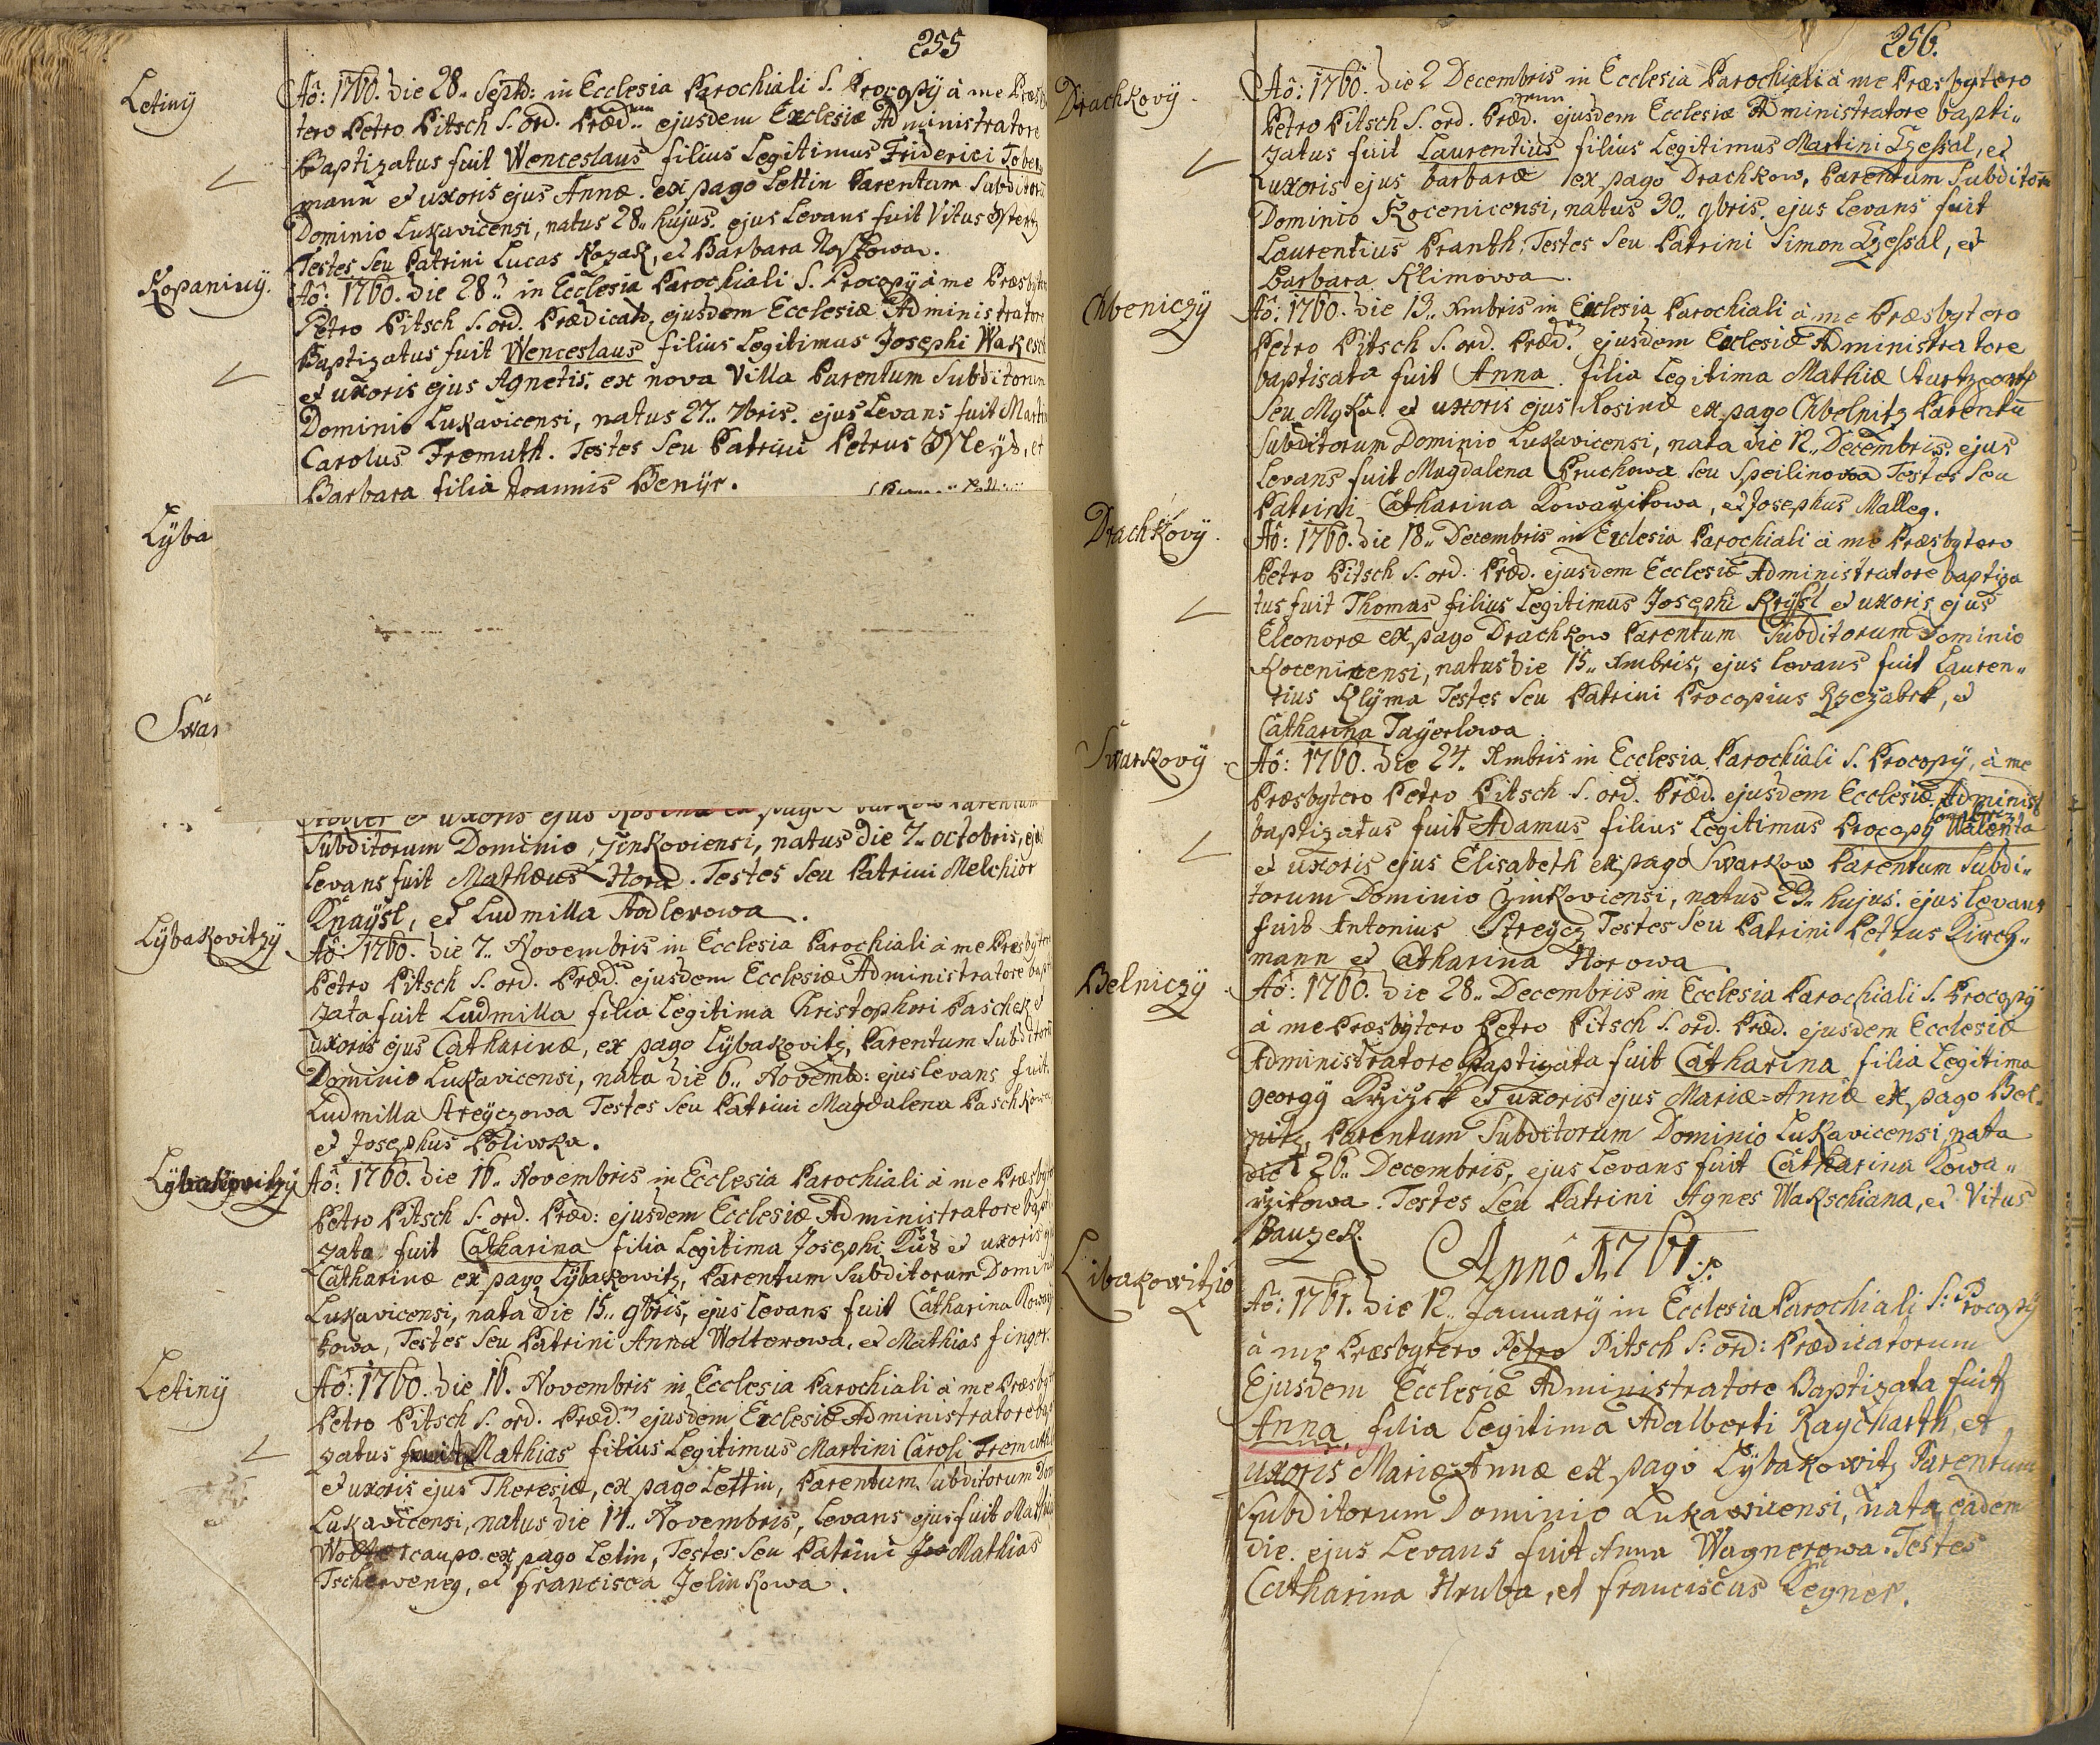 255
Letinÿ
Aô: 1760. die 28.. Septb: in Ecclesia Parochiali S. Procopÿ à me Præsby
tero Petro Pitsch S. ord. Præd.rum ejusdem Ecclesiæ Administratore
Baptizatus fuit Wenceslaus filius Legitimus Friderici
mann et uxoris ejus Annæ. ex pago Lettin Parentum Subditorū
Dominio Lukavicensi, natus 28.. hujus. ejus Levans fuit Vitus
Testes seu Patrini Lucas Kozak, et Barbara Noskowa.
Kopaninÿ.
Aô: 1760. die 28.. in Ecclesia Parochiali S. Procopÿ à me Præsbytero
Petro Pitsch S. ord. Prædicatō, ejusdem Ecclesiæ Administratore
Baptizatus fuit Wenceslaus filius Legitimus Josephi
et uxoris ejus Agnetis. ex nova Villa Parentum Subditorum
Dominio Lukavicensi, natus 27.. 7bris. ejus Levans fuit Martin
Carolus Fremuth. Testes Seu Patrini Petrus et
Barbara filia Joannis Benÿr.
Lÿba
Swar
et uxoris ejus Rosinæ ex pago Parentum
Subditorum Dominio Žinkoviensi, natus die 7.. octobris, ejus
Levans fuit Mathæus Hora. Testes Seu Patrini Melchior
Knaÿsl, et Ludmilla Adlerowa.
Lÿbakovitzÿ
Aô: 1760. die 7.. Novembris in Ecclesia Parochiali à me Præsbytero
Petro Pitsch S. ord. Præd. ejusdem Ecclesiæ Administratore bapti
zata fuit Ludmilla filia Legitima Christophori Paschek et
uxoris ejus Catharinæ, ex pago Lÿbakovitz, Parentum Subditorū
Dominio Lukavicensi, nata die 6.. Novemb: ejus levans fuit.
Ludmilla Streÿczowa Testes Seu Patrini Magdalena Paschkowa
et Josephus Poliwka.
Lÿbakovitzÿ
Aô: 1760. die 16.. Novembris in Ecclesia Parochiali à me Præsbyte
Petro Pitsch S. ord. Præd: ejusdem Ecclesiæ Administratore bapti
zata fuit Catharina filia Legitima Josephi et uxoris ejus
Catharinæ ex pago Lÿbakowitz, Parentum Subditorum Dominio
Lukavicensi, nata die 15.. 9bris, ejus levans fuit Catharina
kowa, Testes Seu Patrini Anna Wolterowa, et Mathias finger.
Letinÿ
Aô: 1760. die 16. Novembris in Ecclesia Parochiali à me Præsby
Petro Pitsch S. ord. Præd. ejusdem Ecclesiæ Administratore bapti
zatus fuit Mathias filius Legitimus Martini Caroli Fremuth
et uxoris ejus Theresiæ, ex pago Lettin, Parentum Subditorum Dom
Lukavicensi, natus die 14.. Novembris, Levans ejus fuit Mathias
Wolter caupo ex pago Letin, Testes Seu Patrini Mathias
Tscherveneg, et Francisca Jelinkowa.
256.
Drachkovÿ.
Aô: 1760. die 2 Decembris in Ecclesia Parochiali à me Præsbytero
Petro Pitsch S. ord. Præd.rum ejusdem Ecclesiæ Administratore bapti..
zatus fuit Laurentius filius Legitimus Martini, et
uxoris ejus barbaræ ex pago Drachkow, Parentum Subditorū
Dominio Rocenicensi, natus 30.. 9bris. ejus levans fuit
Laurentius Pranth: Testes Seu Patrini Simon, et
Barbara Klimowa.
Chbeniczÿ
Aô: 1760. die 13.. Xmbris in Ecclesia Parochiali à me Præsbytero
Petro Pitsch S. ord. Præd. ejusdem Ecclesiæ Administratore
baptisata fuit Anna. filia Legitima Mathiæ
Seu et uxoris ejus Rosinæ ex pago Chbelnitz Parentū
Subditorum Dominio Lukavicensi, nata die 12.. Decembris. ejus
Levans fuit Magdalena Pruchowa seu Speilinowa Testes Seu
Patrini Catharina Kowarzikowa, et Josephus Malleg.
Drachkovÿ.
Aô: 1760. die 18.. Decembris in Ecclesia Parochiali à me Præsbytero
Petro Pitsch S. ord. Præd. ejusdem Ecclesiæ Administratore baptiza
tus fuit Thomas filius Legitimus Josephi Krÿsl et uxoris ejus
Eleonoræ ex pago Drachkow Parentum Subditorum Dominio
Rocenicensi, natus die 15.. Xmbris, ejus levans fuit Lauren..
tius Klÿma Testes Seu Patrini Procopius Rzezabek, et
Catharina Taÿerlowa.
Swarkovÿ
Aô: 1760. die 24. Xmbris in Ecclesia Parochiali S. Procopÿ, à me
Præsbytero Petro Pitsch S. ord. Præd. ejusdem Ecclesiæ Administ
baptizatus fuit Adamus filius Legitimus Procopÿ Walenta
et uxoris ejus Elisabeth ex pago Swarkow Parentum Subdi..
torum Dominio Czinkoviensi, natus 23.. hujus. ejus levans
fuit Antonius Streÿcz Testes Seu Patrini Petrus Kirch..
mann et Catharina Horowa.
Belniczÿ
Aô: 1760. die 28.. Decembris in Ecclesia Parochiali S. Procopÿ
à me Præsbytero Petro Pitsch S. ord. Præd. ejusdem Ecclesiæ
Administratore Baptizata fuit Catharina filia Legitima
georgÿ Krzizek et uxoris ejus Mariæ=Annæ ex pago Bel..
nitz, Parentum Subditorum Dominio Lukavicensi, nata
die 26.. Decembris, ejus Levans fuit Catharina Kowa..
rzikowa. Testes Seu Patrini Agnes Wakschiana, et Vitus
Bauzek.
Annô 1761:
Libakowitzio
Aô: 1761. die 12.. Januarÿ in Ecclesia Parochiali S: Procopÿ
à me Præsbytero Petro Pitsch S: ord: Prædicatorum
Ejusdem Ecclesiæ Administratore Baptizata fuit
Anna, filia Legitima Adalberti Raycharth, et
uxoris Mariæ=Annæ ex pago Lÿbakowitz Parentum
Subditorum Dominio Lukawicensi, nata eadem
die. ejus Levans fuit Anna Wagnerowa. Testes
Catharina Hruba, et franciscus Legner.